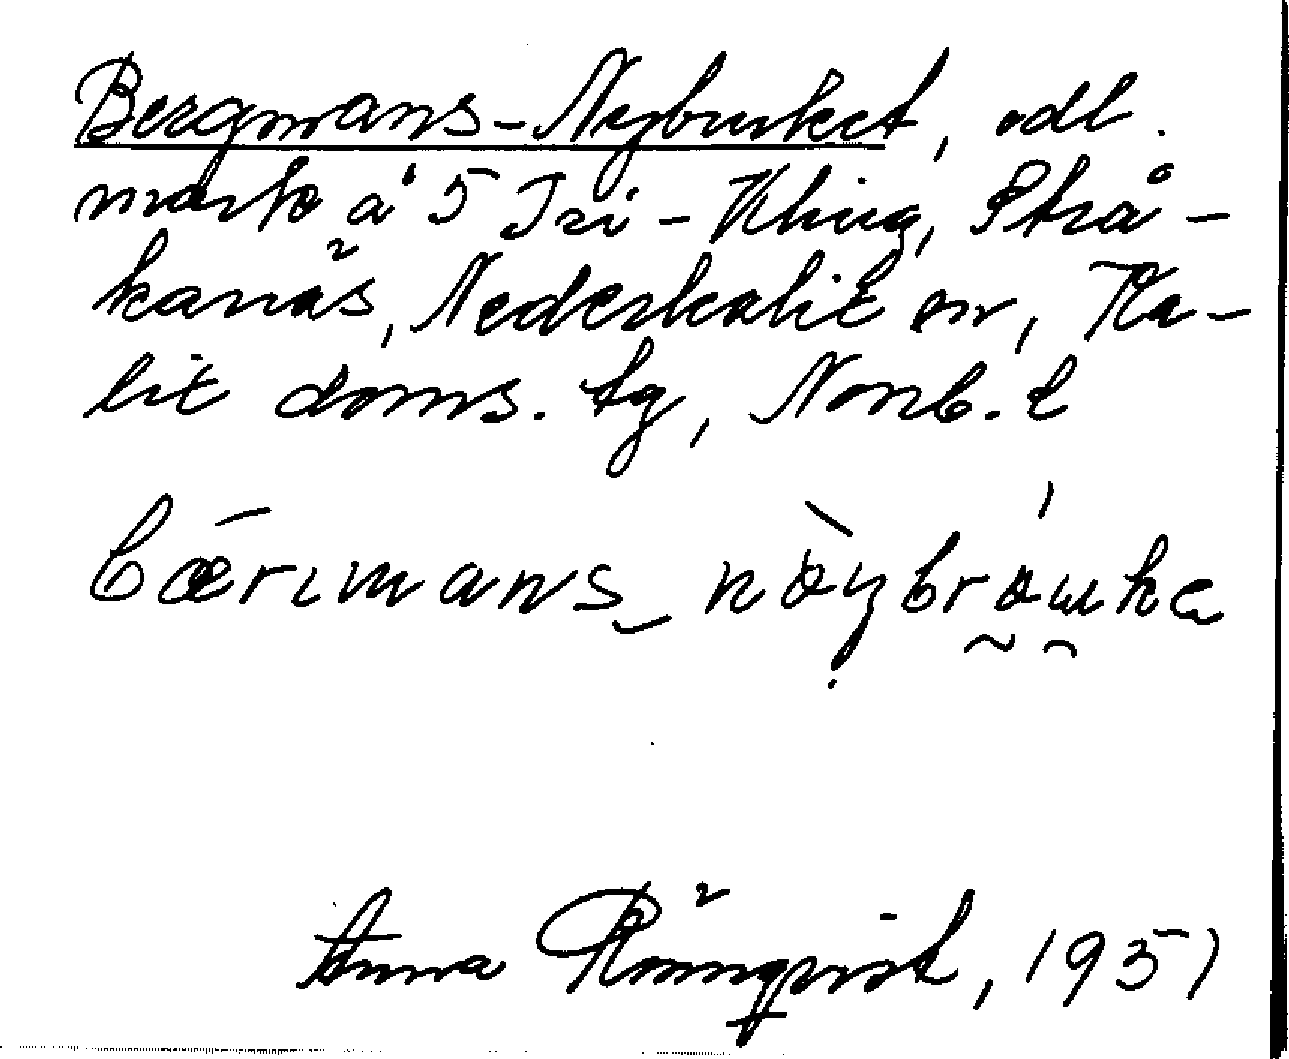 Bergmans-Nybruket, odl.
mark å 5 Tri-Kling, Strå-
kanäs, Nederkalix sn, Ka-
lix doms. tg, Norrb. l
bærımans_ nòybrȧɯka
Anna Rönnqvist, 1951